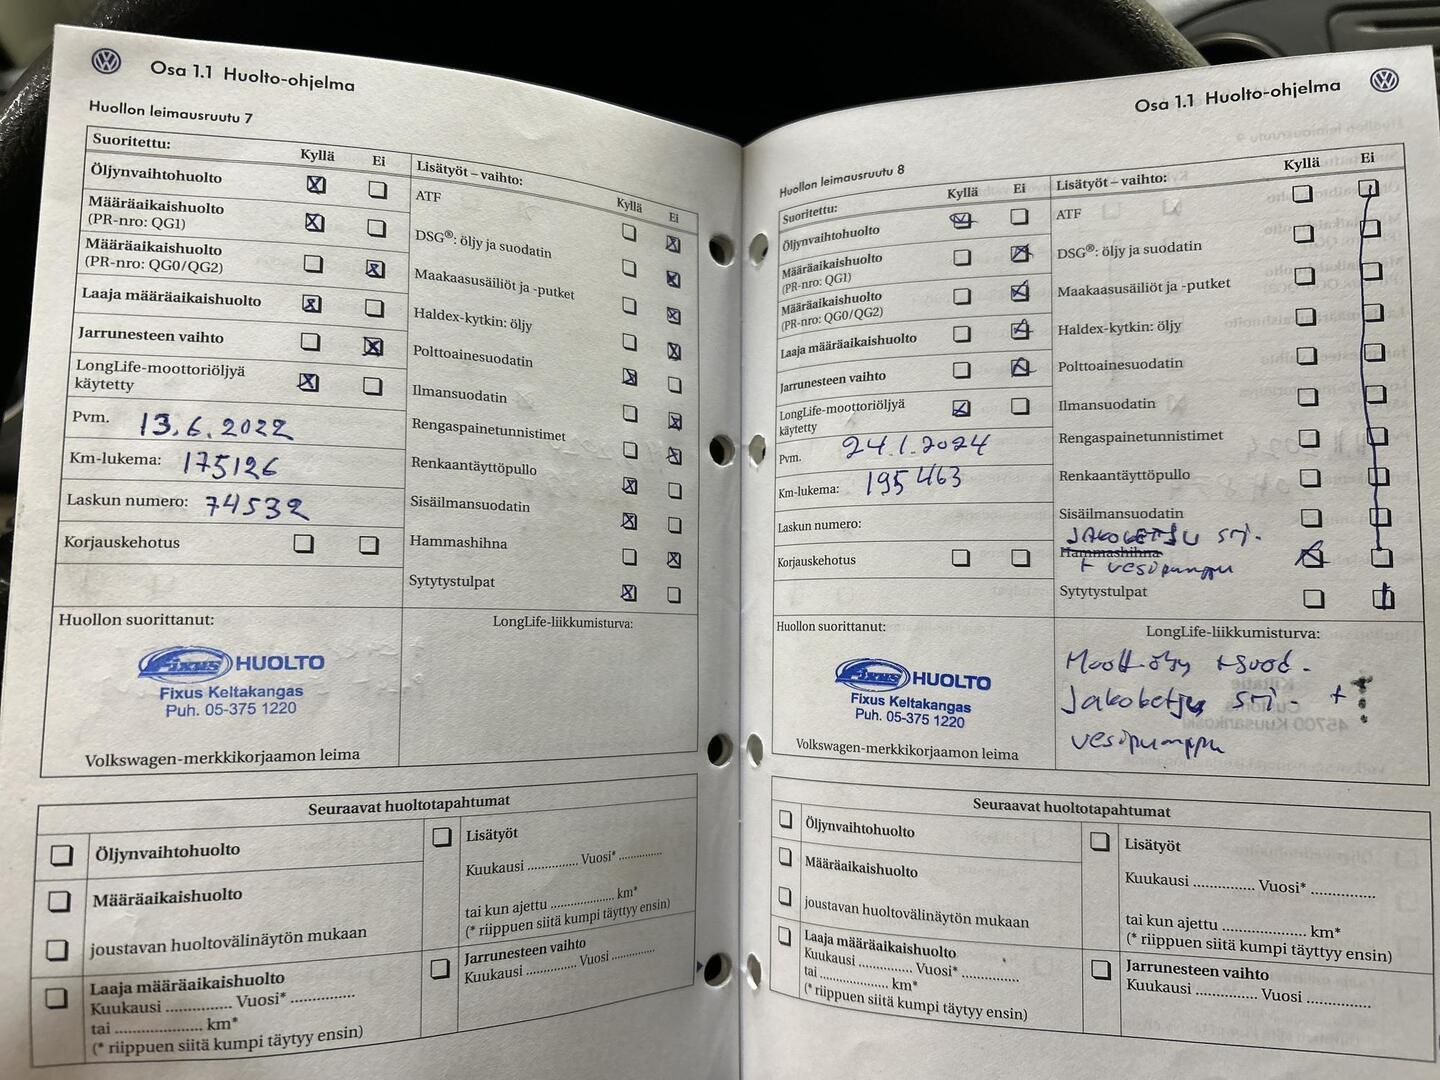 Osa 1.1 Huolto-ohjelma
Huollon leimausruutu 7
Suoritettu:
Kyllä
Ei
Öljynvaihtohuolto
Määräaikaishuolto
(PR-nro: QG1)
Määräaikaishuolto
(PR-nro: QG0/QG2)
Laaja määräaikaishuolto
Jarrunesteen vaihto
LongLife-moottoriöljyä
käytetty
Pvm. 13.6.2022
Km-lukema: 175126
Laskun numero: 74532
Korjauskehotus
Lisätyöt – vaihto:
Kyllä
Ei
ATF
DSG®: öljy ja suodatin
Maakaasusäiliöt ja -putket
Haldex-kytkin: öljy
Polttoainesuodatin
Ilmansuodatin
Rengaspainetunnistimet
Renkaantäyttöpullo
Sisäilmansuodatin
Hammashihna
Sytytystulpat
Huollon suorittanut:
Fixus HUOLTO
Fixus Keltakangas
Puh. 05-375 1220
Volkswagen-merkkikorjaamon leima
LongLife-liikkumisturva:
Seuraavat huoltotapahtumat
Öljynvaihtohuolto
Määräaikaishuolto
joustavan huoltovälinäytön mukaan
Laaja määräaikaishuolto
Kuukausi ............... Vuosi* ...............
tai .................... km*
(* riippuen siitä kumpi täytyy ensin)
Lisätyöt
Kuukausi ............. Vuosi* .............
tai kun ajettu .................. km*
(* riippuen siitä kumpi täytyy ensin)
Jarrunesteen vaihto
Kuukausi ............. Vuosi .............
Osa 1.1 Huolto-ohjelma
Huollon leimausruutu 8
Suoritettu:
Kyllä
Ei
Öljynvaihtohuolto
Määräaikaishuolto
(PR-nro: QG1)
Määräaikaishuolto
(PR-nro: QG0/QG2)
Laaja määräaikaishuolto
Jarrunesteen vaihto
LongLife-moottoriöljyä
käytetty
Pvm. 24.1.2024
Km-lukema: 195463
Laskun numero:
Korjauskehotus
Lisätyöt – vaihto:
Kyllä
Ei
ATF
DSG®: öljy ja suodatin
Maakaasusäiliöt ja -putket
Haldex-kytkin: öljy
Polttoainesuodatin
Ilmansuodatin
Rengaspainetunnistimet
Renkaantäyttöpullo
Sisäilmansuodatin
JAKOKETJU srj.
Hammashihna
+ vesipumppu
Sytytystulpat
Huollon suorittanut:
Fixus HUOLTO
Fixus Keltakangas
Puh. 05-375 1220
Volkswagen-merkkikorjaamon leima
LongLife-liikkumisturva:
Moott.öljy +suod.
Jakoketju srj. +
vesipumppu
Seuraavat huoltotapahtumat
Öljynvaihtohuolto
Määräaikaishuolto
joustavan huoltovälinäytön mukaan
Laaja määräaikaishuolto
Kuukausi ............. Vuosi* .............
tai .................... km*
(* riippuen siitä kumpi täytyy ensin)
Lisätyöt
Kuukausi ............... Vuosi* ...............
tai kun ajettu .................... km*
(* riippuen siitä kumpi täytyy ensin)
Jarrunesteen vaihto
Kuukausi ............... Vuosi ...............